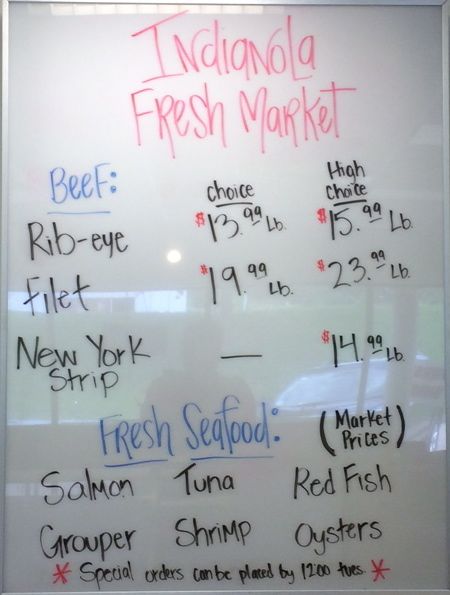 Indianola
Fresh Market
Beef: Choice High Choice
Rib-eye $13.99 Lb. $15.99 Lb.
Filet $19.99 Lb. $23.99 Lb.
New York Strip — $14.99 Lb.
Fresh Seafood: (Market Prices)
Salmon Tuna Red Fish
Grouper Shrimp Oysters
* Special orders can be placed by 12:00 tues. *